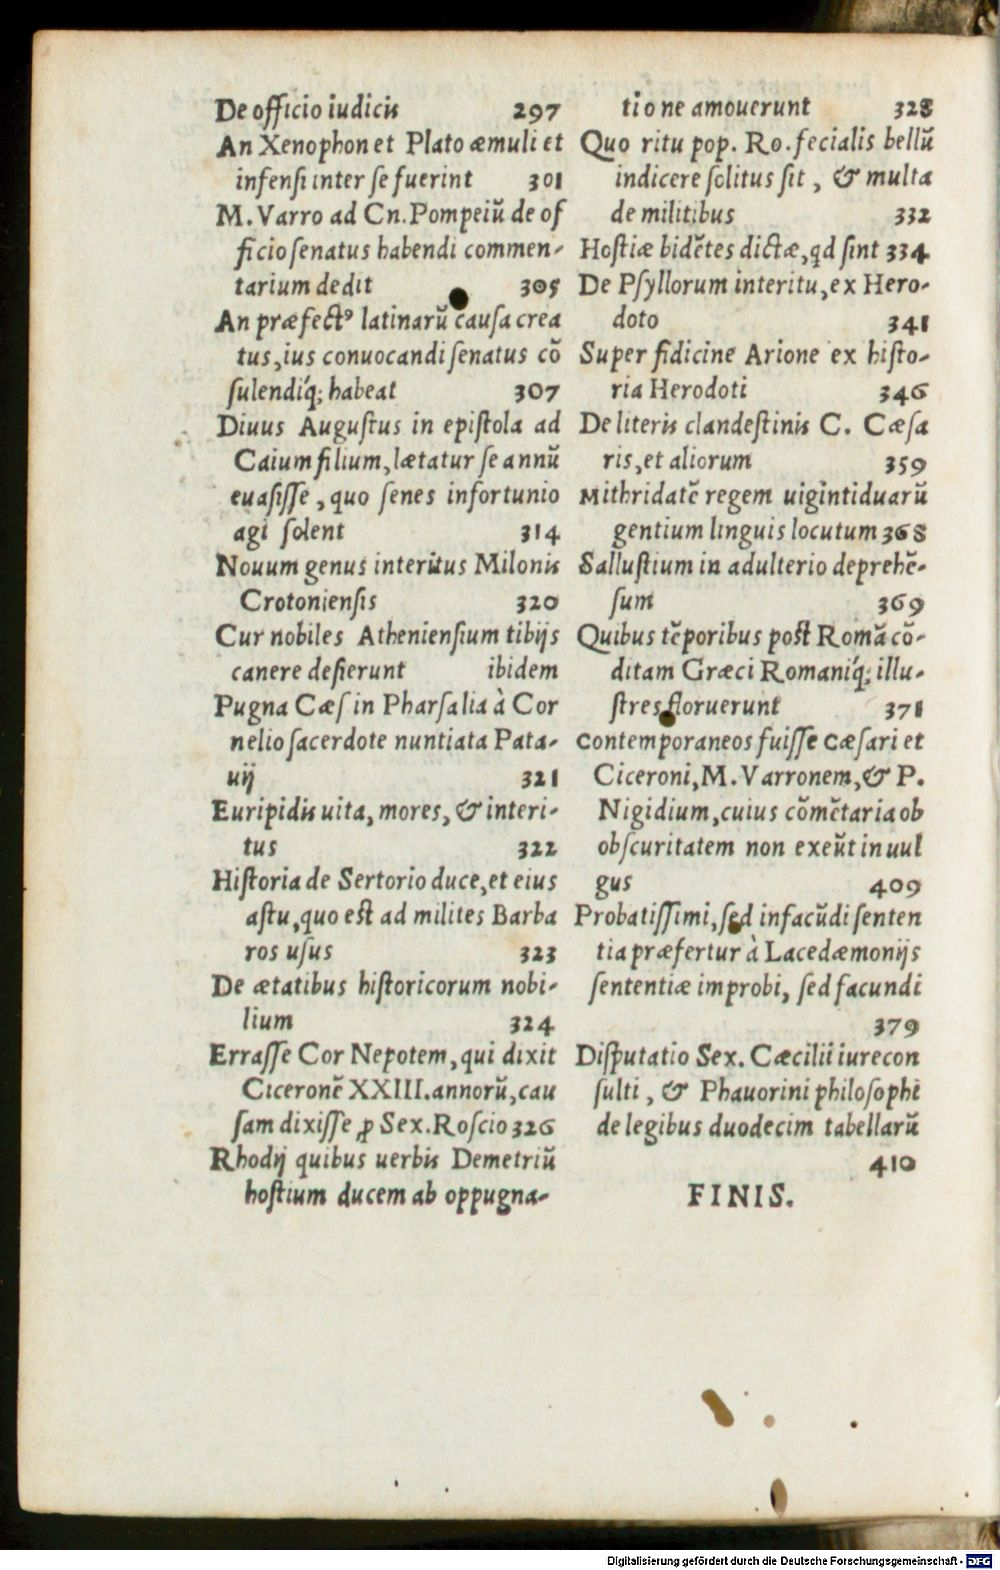 De officio iudicis 297
An Xenophon et Plato æmuli et
infensi inter se fuerint 301
M. Varro ad Cn. Pompeiũ de of
ficio senatus habendi commen-
tarium dedit 305
An præfectꝰ latinarũ causa crea
tus, ius conuocandi senatus cõ
sulendiq́; habeat 307
Diuus Augustus in epistola ad
Caium filium, lætatur se annũ
euasisse, quo senes infortunio
agi solent 314
Nouum genus interitus Milonis
Crotoniensis 320
Cur nobiles Atheniensium tibijs
canere desierunt ibidem
Pugna Cæs in Pharsalia à Cor
nelio sacerdote nuntiata Pata-
uij 321
Euripidis uita, mores, & interi-
tus 322
Historia de Sertorio duce, et eius
astu, quo est ad milites Barba
ros usus 323
De ætatibus historicorum nobi-
lium 324
Errasse Cor Nepotem, qui dixit
Ciceronẽ XXIII. annorũ, cau
sam dixisse ꝓ Sex. Roscio 326
Rhodij quibus uerbis Demetriũ
hostium ducem ab oppugna-
tione amouerunt 328
Quo ritu pop. Ro. fecialis bellũ
indicere solitus sit, & multa
de militibus 332
Hostiæ bidẽtes dictæ, qd sint 334
De Psyllorum interitu, ex Hero-
doto 341
Super fidicine Arione ex histo-
ria Herodoti 346
De literis clandestinis C. Cæsa
ris, et aliorum 359
Mithridatẽ regem uigintiduarũ
gentium linguis locutum 368
Sallustium in adulterio deprehẽ-
sum 369
Quibus tẽporibus post Romã cõ-
ditam Græci Romaniq́; illu-
stres floruerunt 371
Contemporaneos fuisse Cæsari et
Ciceroni, M. Varronem, & P.
Nigidium, cuius cõmẽtaria ob
obscuritatem non exeũt in uul
gus 409
Probatissimi, sed infacũdi senten
tia præfertur à Lacedæmonijs
sententiæ improbi, sed facundi
379
Disputatio Sex. Cæcilii iurecon
sulti, & Phauorini philosophi
de legibus duodecim tabellarũ
410
FINIS.
Digitalisierung gefördert durch die Deutsche Forschungsgemeinschaft - DFG